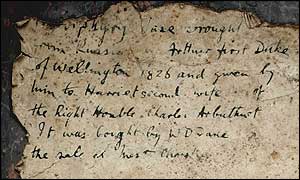 vase brought
from Russia Arthur first Duke
of Wellington 1826 and given by
him to Harriet second wife of
the Right Honble Charles Arbuthnot
It was bought by W D
the sale of